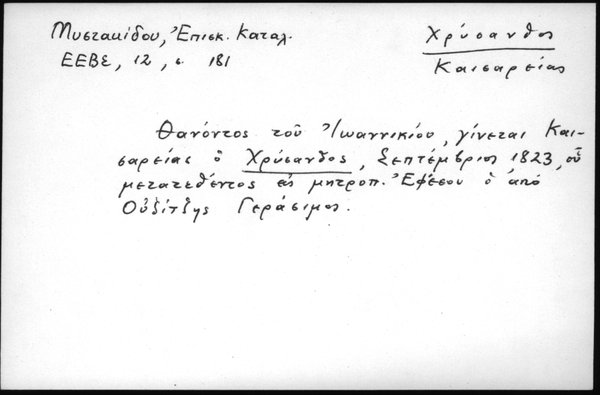 Μυστακίδου, Ἐπισκ. Καταλ.
ΕΕΒΣ, 12, σ. 181
Χρύσανθος
Καισαρείας
Θανόντος τοῦ Ἰωαννικίου, γίνεται Και-
σαρείας ὁ Χρύσανθος, Σεπτέμβριος 1823, οὗ
μετατεθέντος εἰς μητροπ. Ἐφέσου ὁ ἀπό
Οὐζίτζης Γεράσιμος.